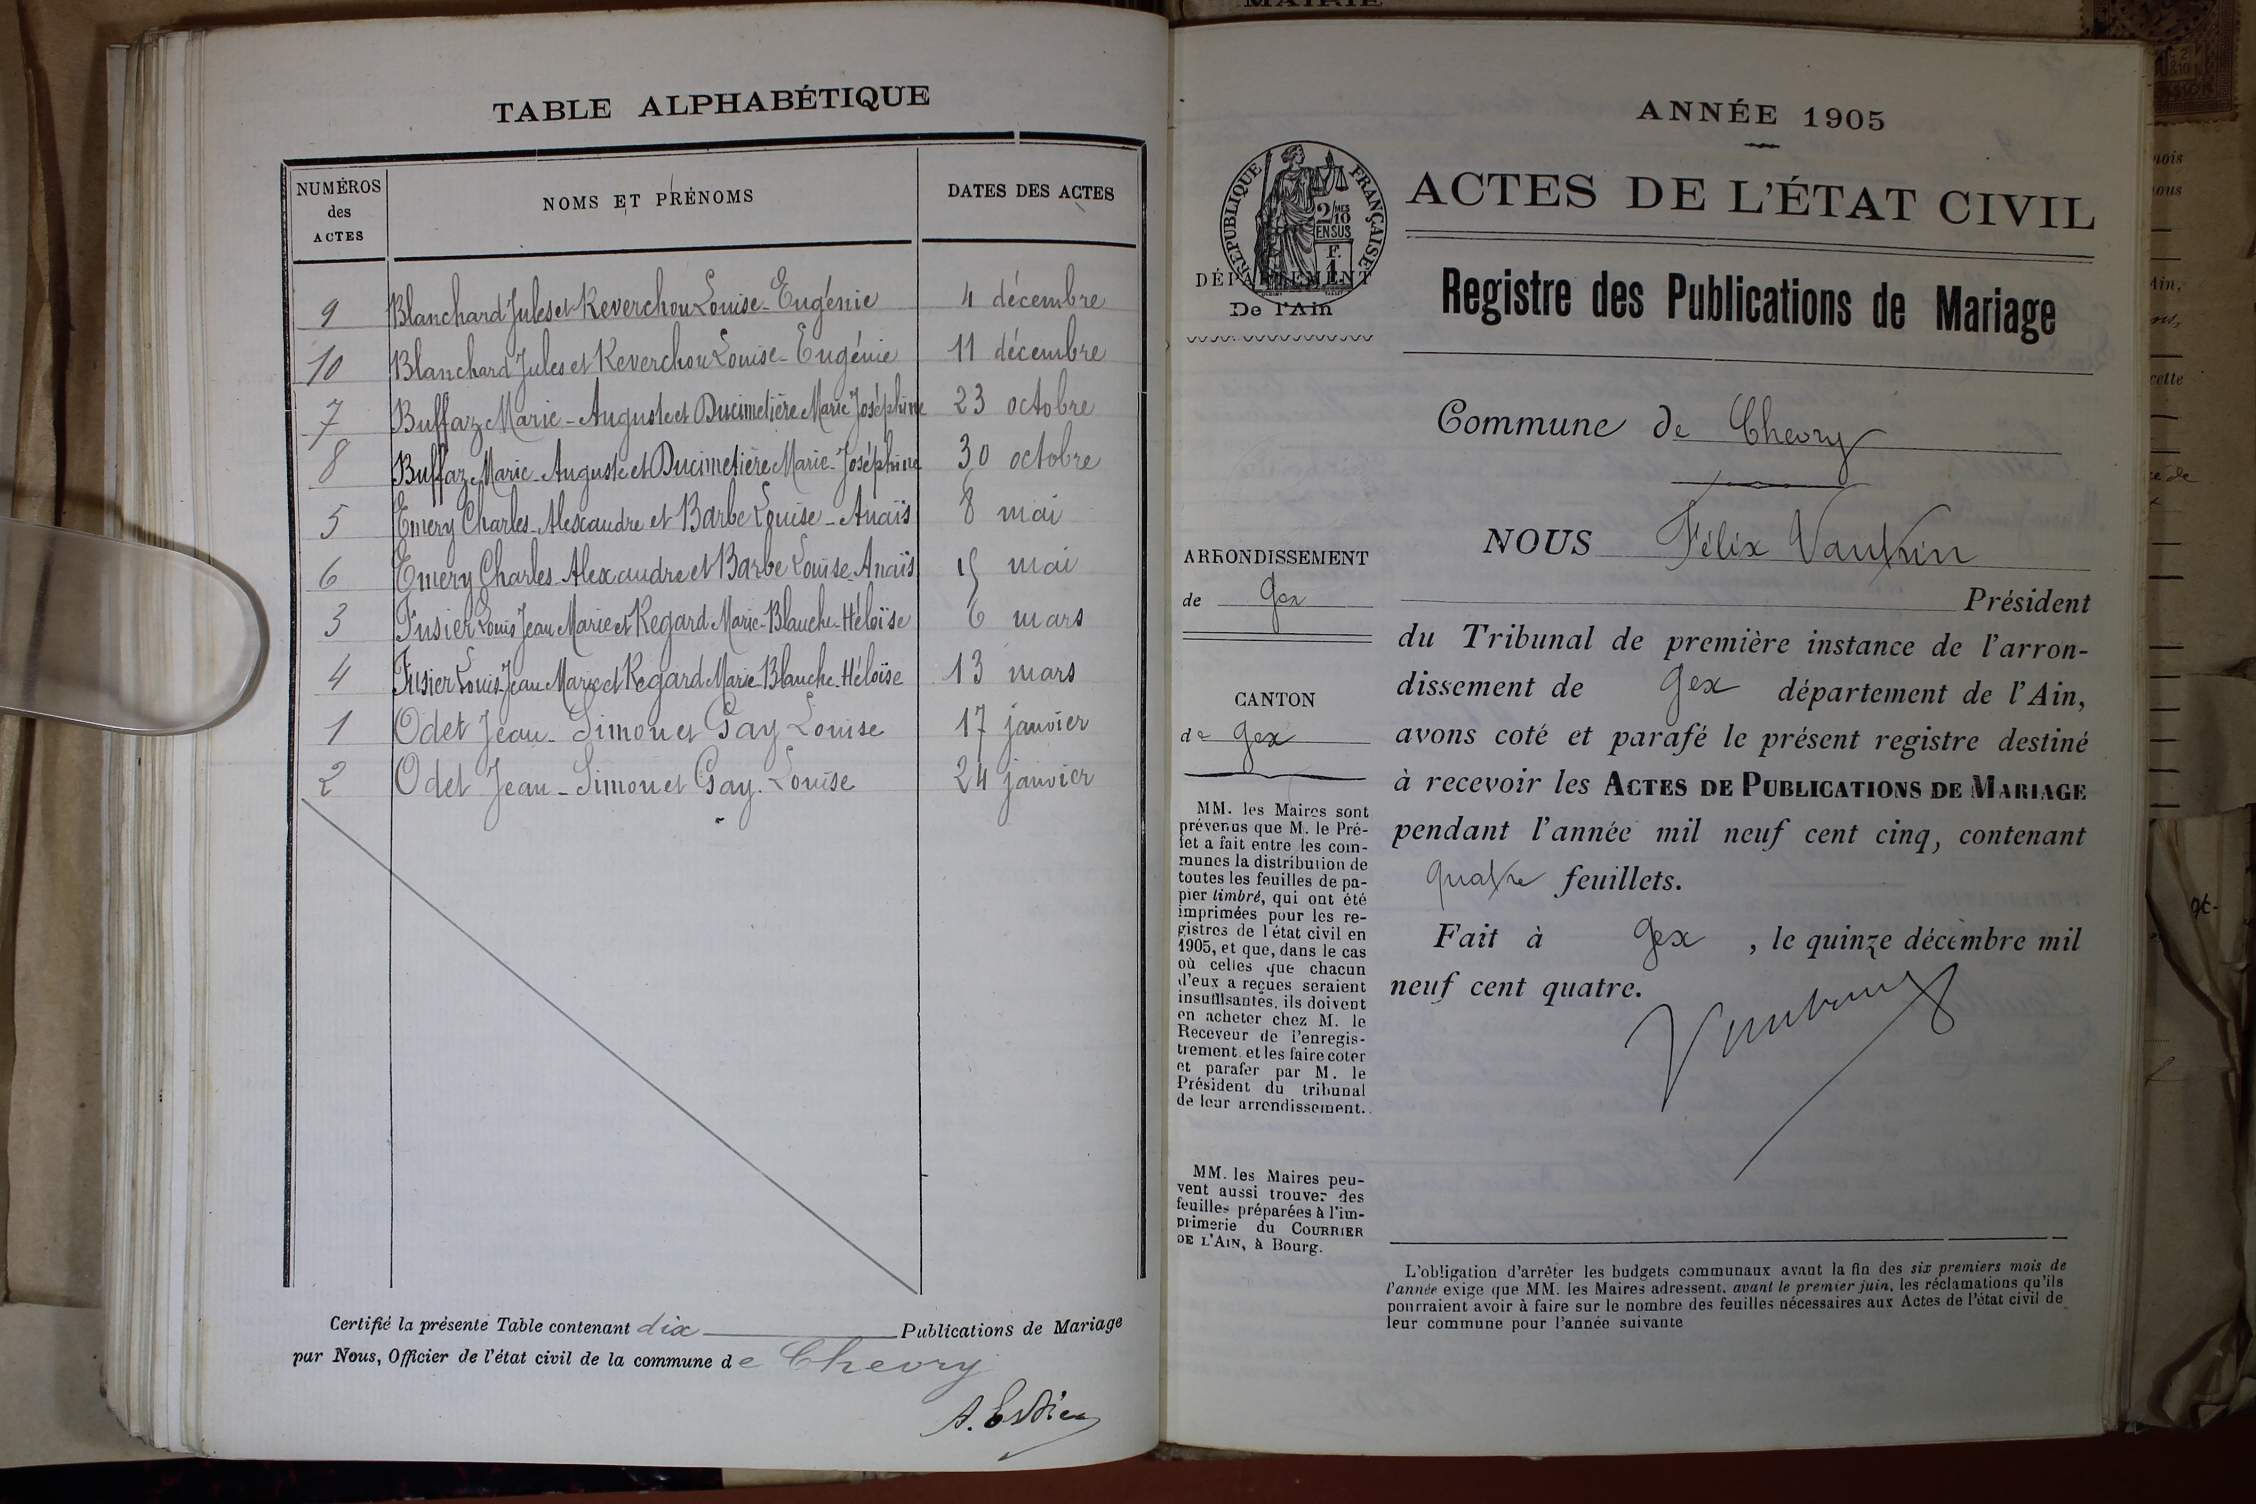 TABLE ALPHABÉTIQUE
NUMÉROS
des
ACTES
NOMS ET PRÉNOMS
DATES DES ACTES
9 Blanchard Jules et Reverchon Louise-Eugénie 4 décembre
10 Blanchard Jules et Reverchon Louise-Eugénie 11 décembre
7 Buffaz Marie-Auguste et Ducimetière Marie Joséphine 23 octobre
8 Buffaz Marie-Auguste et Ducimetière Marie-Joséphine 30 octobre
5 Emery Charles-Alexandre et Barbe Louise-Anaïs 8 mai
6 Emery Charles-Alexandre et Barbe Louise-Anaïs 15 mai
3 Fusier Louis Jean Marie et Regard Marie-Blanche-Héloïse 6 mars
4 Fusier Louis-Jean Marie et Regard Marie-Blanche-Héloïse 13 mars
1 Odet Jean-Simon et Gay Louise 17 janvier
2 Odet Jean-Simon et Gay Louise 24 janvier
Certifié la présente Table contenant dix Publications de Mariage
par Nous, Officier de l'état civil de la commune de Chevry
MAIRIE
ANNÉE 1905
ACTES DE L'ÉTAT CIVIL
RÉPUBLIQUE FRANÇAISE
2/10 MES
EN SUS
F.
1
DÉPARTEMENT
De l'Ain
Registre des Publications de Mariage
Commune de Chevry
NOUS Félix Vautrin
Président
du Tribunal de première instance de l'arron-
dissement de Gex département de l'Ain,
avons coté et parafé le présent registre destiné
à recevoir les ACTES DE PUBLICATIONS DE MARIAGE
pendant l'année mil neuf cent cinq, contenant
quatre feuillets.
Fait à Gex, le quinze décembre mil
neuf cent quatre.
ARRONDISSEMENT
de Gex
CANTON
de Gex
MM. les Maires sont
prévenus que M. le Pré-
fet a fait entre les com-
munes la distribution de
toutes les feuilles de pa-
pier timbré, qui ont été
imprimées pour les re-
gistres de l'état civil en
1905, et que, dans le cas
où celles que chacun
d'eux a reçues seraient
insuffisantes, ils doivent
en acheter chez M. le
Receveur de l'enregis-
trement, et les faire coter
et parafer par M. le
Président du tribunal
de leur arrondissement.
MM. les Maires peu-
vent aussi trouver des
feuilles préparées à l'im-
primerie du COURRIER
DE L'AIN, à Bourg.
L'obligation d'arrêter les budgets communaux avant la fin des six premiers mois de
l'année exige que MM. les Maires adressent, avant le premier juin, les réclamations qu'ils
pourraient avoir à faire sur le nombre des feuilles nécessaires aux Actes de l'état civil de
leur commune pour l'année suivante